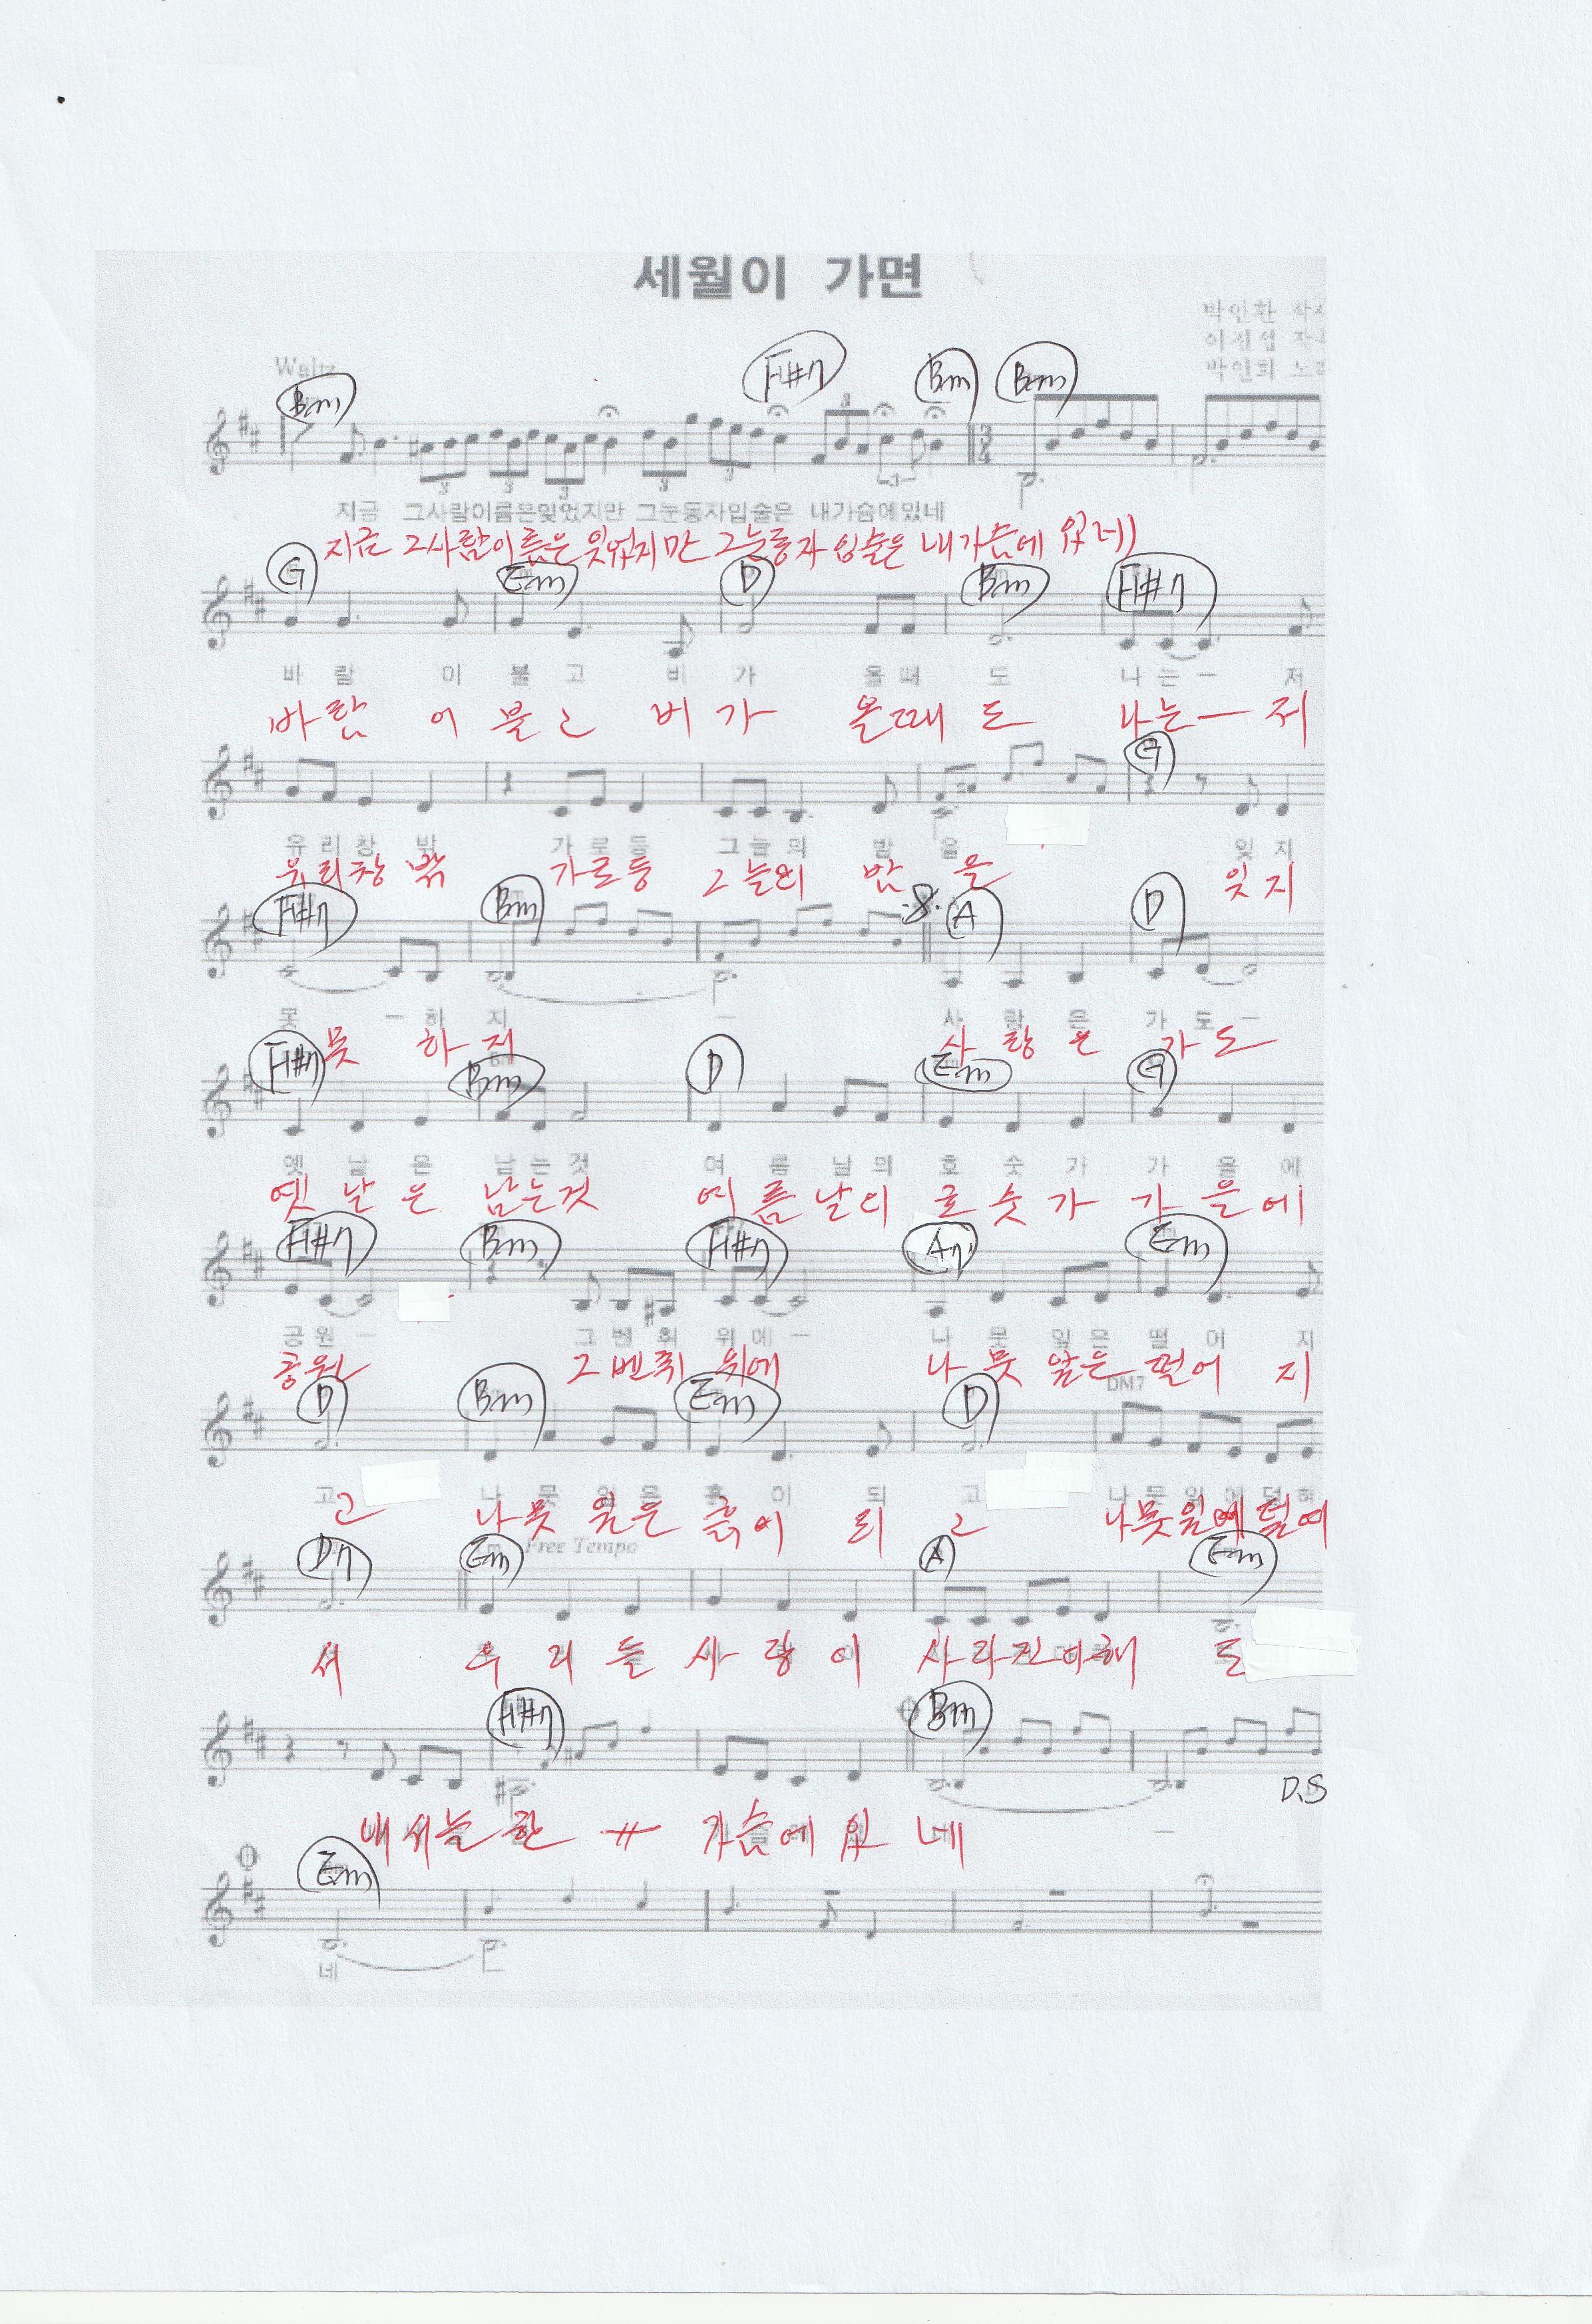 세월이 가면
박인환 작사
이진섭 작
박인희 노래
Waltz
Bm F#7 Bm Bm
3 3 3 3 3 3 3
3/4
지금 그사람이름은잊었지만 그눈동자입술은 내가슴에있네
지금 그사람이름은 잊었지만 그눈동자 입술은 내가슴에 있네
G Em D Bm F#7
바 람 이 불 고 비 가 올 때 도 나 는 ー 저
바 람 이 불 고 비 가 올때 도 나는ー 저
G
유 리 창 밖 가 로 등 그 늘 의 밤 을 잊 지
유리창 밖 가로등 그 늘의 밤 을 잊지
F#7 Bm A D
못 ー 하 지 ー 사 랑 은 가 도 ー
못 하 지 사 랑 은 가 도
F#7 Bm D Em G
옛 날 은 남 는 것 여 름 날 의 호 숫 가 가 을 에
옛 날 은 남는것 여 름 날의 호 숫 가 가 을 에
F#7 Bm F#7 A7 Em
공 원 ー 그 벤 취 위 에 ー 나 뭇 잎 은 떨 어 지
공원 그 벤취 위에 나 뭇 잎은 떨어 지
D Bm Em D DM7
고 나 뭇 잎 은 흙 이 되 고 나 뭇 잎 에 덮 혀
고 나뭇 잎은 흙이 되 고 나뭇잎에덮여
D7 Em Free Tempo A Em
서 우 리 들 사 랑 이 사라진다해 도
F#7 Bm
D.S
내 서늘 한 가슴에 있 네
ー
Em
네